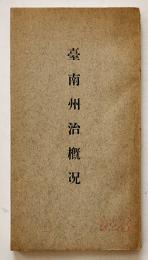 臺南州治概況